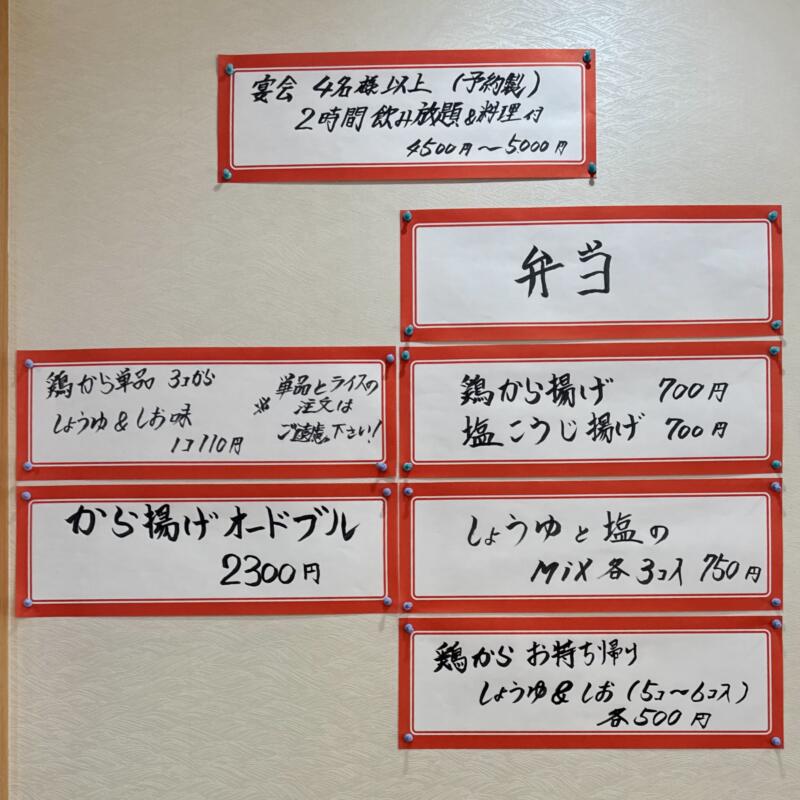 宴会 4名様以上 (予約製)
2時間飲み放題&料理付
4500円～5000円
弁当
鶏から揚げ 700円
塩こうじ揚げ 700円
しょうゆと塩の
MiX 各3コ入 750円
鶏から お持ち帰り
しょうゆ&しお(5コ～6コ入)
各500円
鶏から単品 3コから
しょうゆ&しお味
1コ110円
単品とライスの
※ 注文は
ご遠慮下さい!
から揚げオードブル
2300円